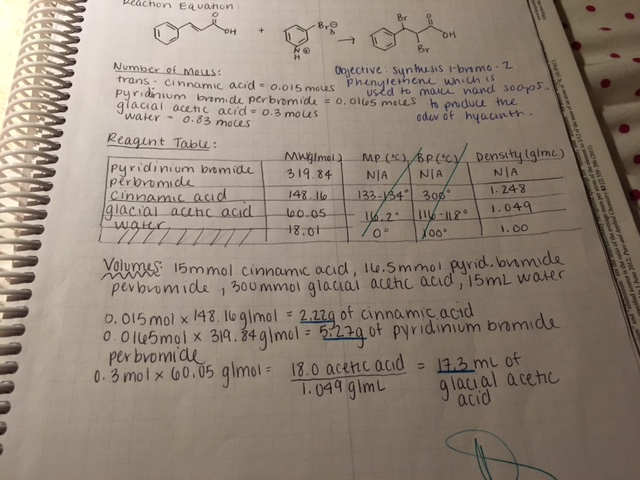 Reaction Equation:
O OH + Br Br₃⊖ N⊕ H → Br O OH Br
Number of Moles:
trans-cinnamic acid = 0.015 moles
pyridinium bromide perbromide = 0.0165 moles
glacial acetic acid = 0.3 moles
water = 0.83 moles
Objective: synthesis 1-bromo-2
phenylethene which is
used to make hand soaps
to produce the
odor of hyacinth.
Reagent Table:
MW(g/mol) MP(°C) BP(°C) Density(g/mL)
pyridinium bromide perbromide 319.84 N/A N/A N/A
cinnamic acid 148.16 133-134° 300° 1.248
glacial acetic acid 60.05 16.2° 116-118° 1.049
water 18.01 0° 100° 1.00
Volumes: 15mmol cinnamic acid, 16.5mmol pyrid. bromide
perbromide, 300mmol glacial acetic acid, 15mL water
0.015mol × 148.16 g/mol = 2.22g of cinnamic acid
0.0165mol × 319.84 g/mol = 5.27g of pyridinium bromide
perbromide
0.3 mol × 60.05 g/mol = 18.0 acetic acid = 17.3 mL of
1.049 g/mL glacial acetic
acid